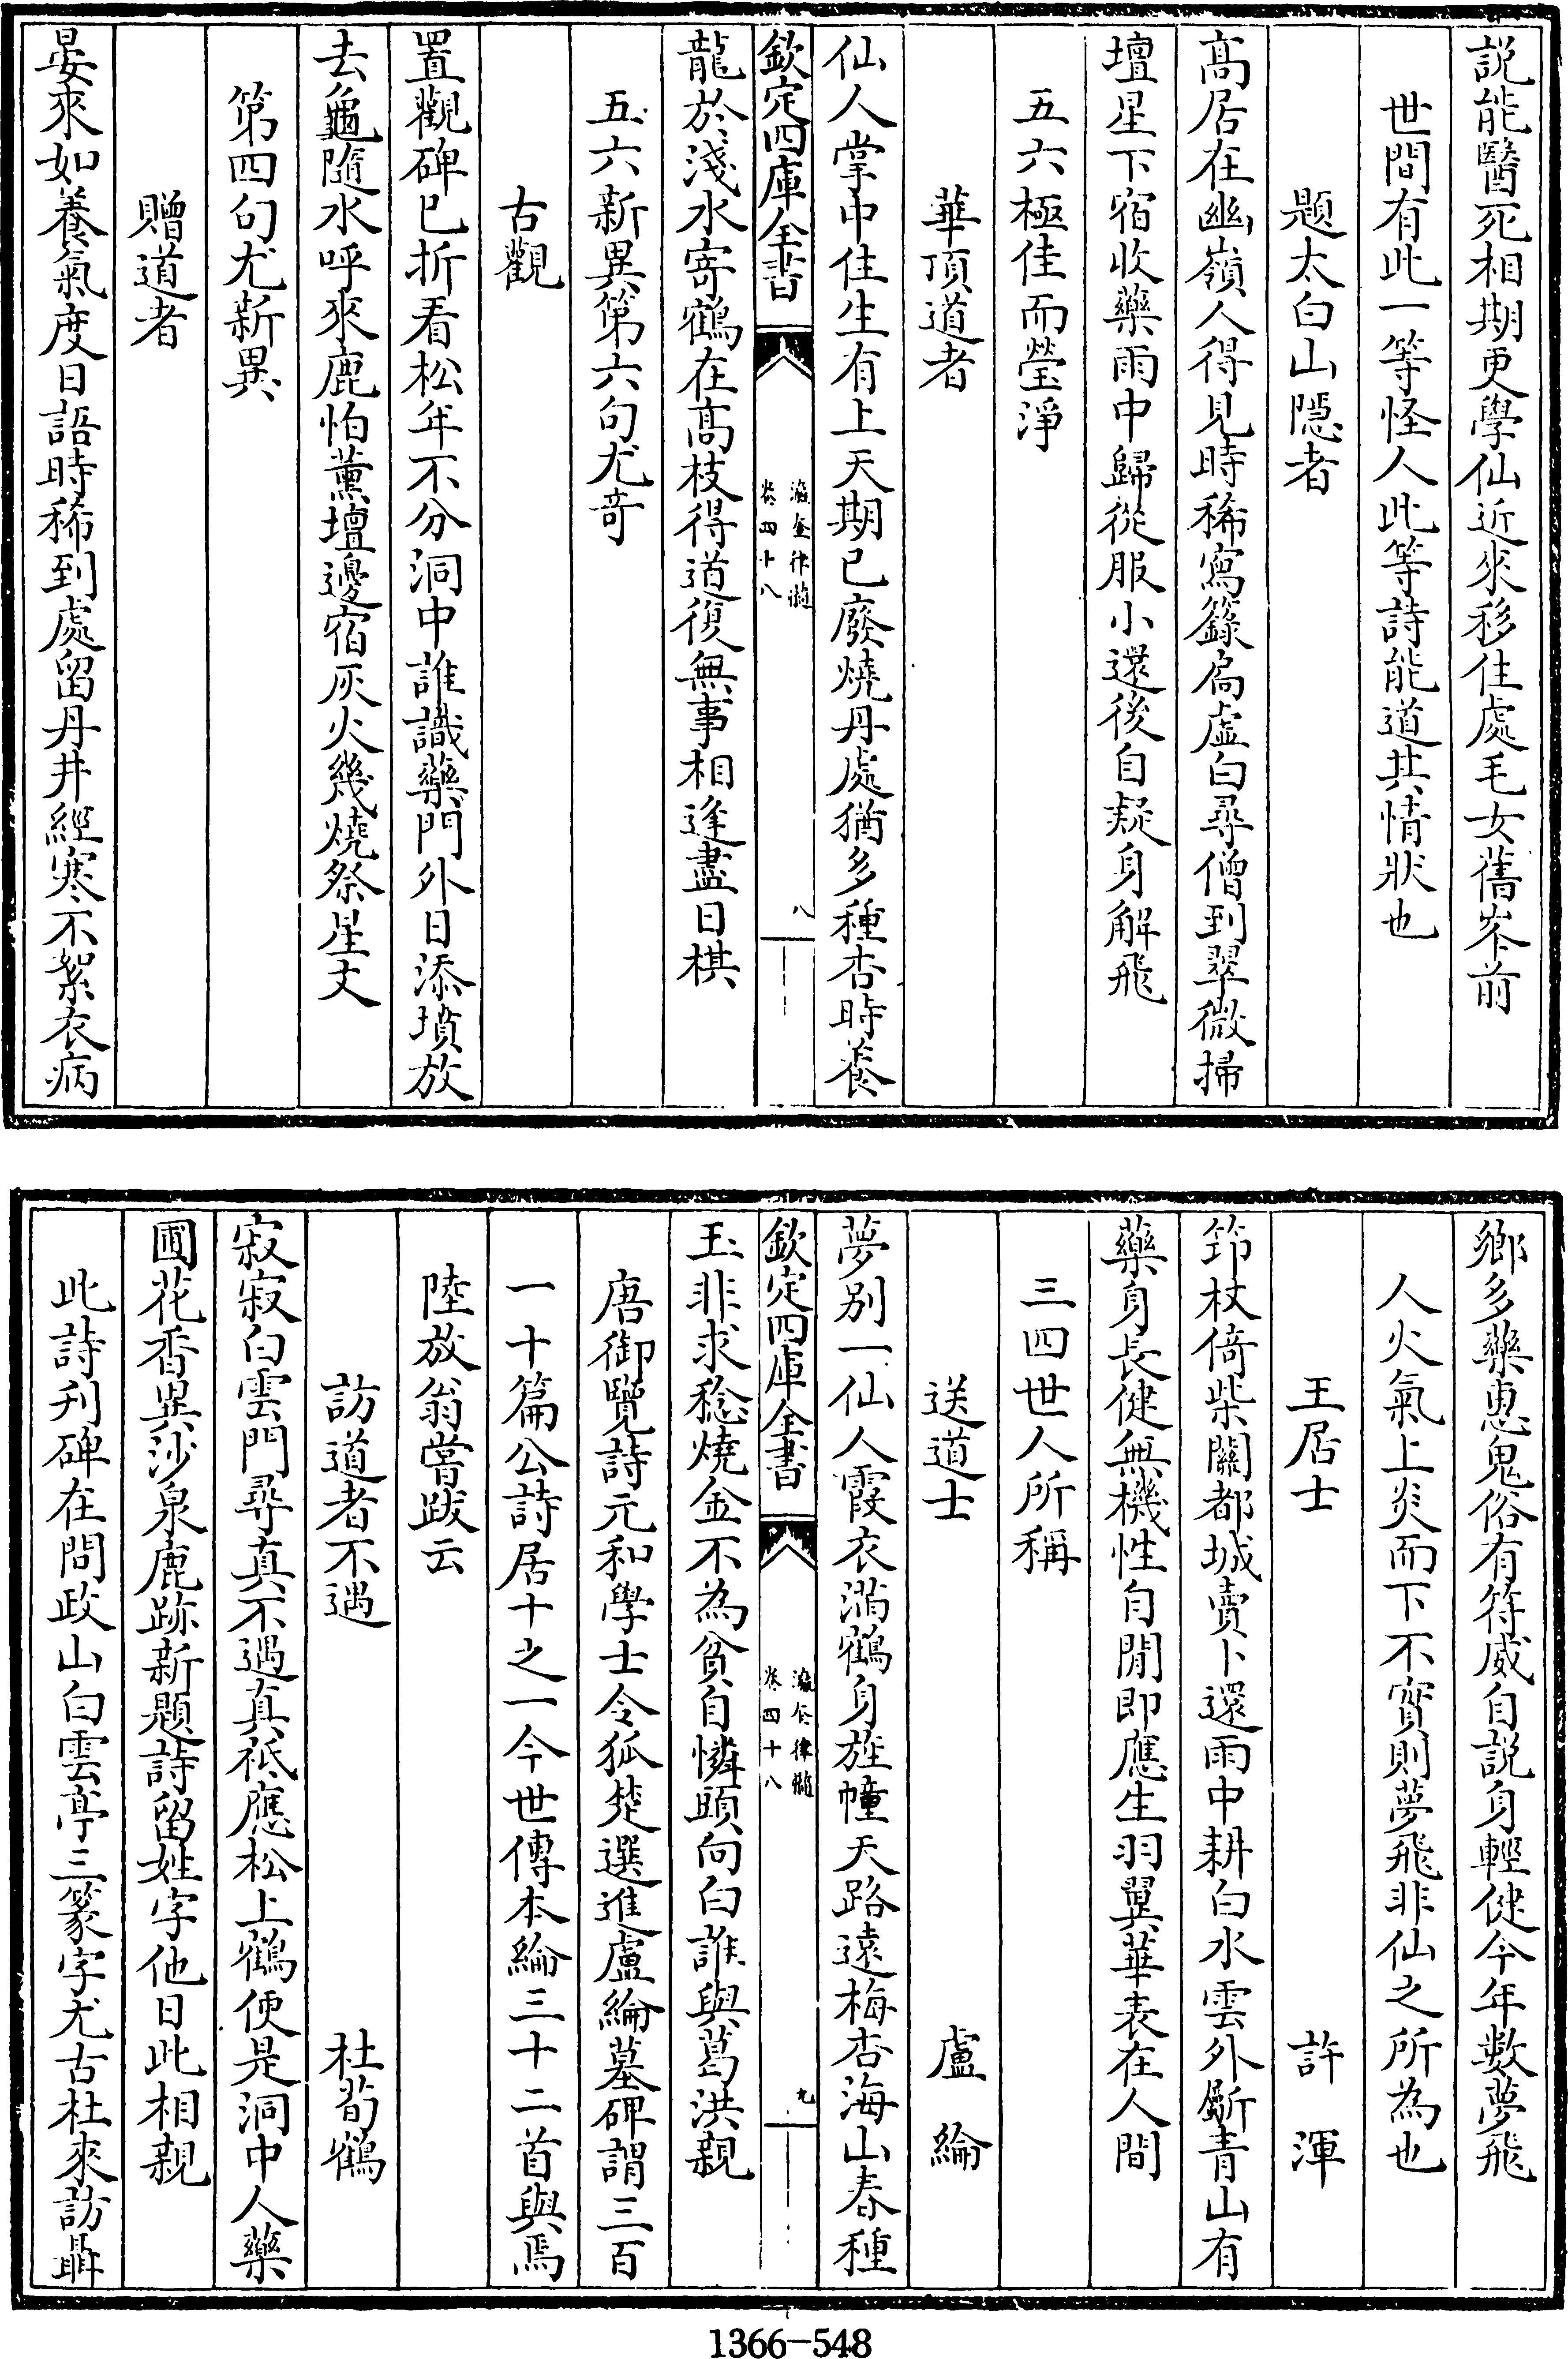 説能醫死相期更學仙近來移住處毛女舊峯前
世間有此一等怪人此等詩能道其情狀也
題太白山隠者
髙居在幽嶺人得見時稀寫籙扃虚白尋僧到翠微掃
壇星下宿收藥雨中歸從服小還後自疑身解飛
五六極佳而瑩淨
華頂道者
仙人掌中住生有上天期已廢燒丹處猶多種杏時養
欽定四庫全書
瀛奎律髓
卷四十八
八
龍於淺水寄鶴在髙枝得道復無事相逢盡日棋
五六新異第六句尤奇
古觀
置觀碑已折看松年不分洞中誰識藥門外日添墳放
去龜隨水呼來鹿怕薰壇邊宿灰火幾燒祭星文
第四句尤新異
贈道者
晏來如養氣度日語時稀到處留丹井經寒不絮衣病
鄉多藥惠鬼俗有符威自説身輕健今年數夢飛
人火氣上炎而下不實則夢飛非仙之所為也
王居士 許渾
笻杖倚柴關都城賣卜還雨中耕白水雲外斸青山有
藥身長健無機性自閒即應生羽翼華表在人間
三四世人所稱
送道士 盧綸
夢别一仙人霞衣滿鶴身旌幢天路遠梅杏海山春種
欽定四庫全書
瀛奎律髓
卷四十八
九
玉非求稔燒金不為貧自憐頭向白誰與葛洪親
唐御覽詩元和學士令狐楚選進盧綸墓碑謂三百
一十篇公詩居十之一今世傳本綸三十二首與焉
陸放翁嘗跋云
訪道者不遇 杜荀鶴
寂寂白雲門尋真不遇真祗應松上鶴便是洞中人藥
圃花香異沙泉鹿跡新題詩留姓字他日此相親
此詩刋碑在問政山白雲亭三篆字尤古杜來訪聶
1366-548